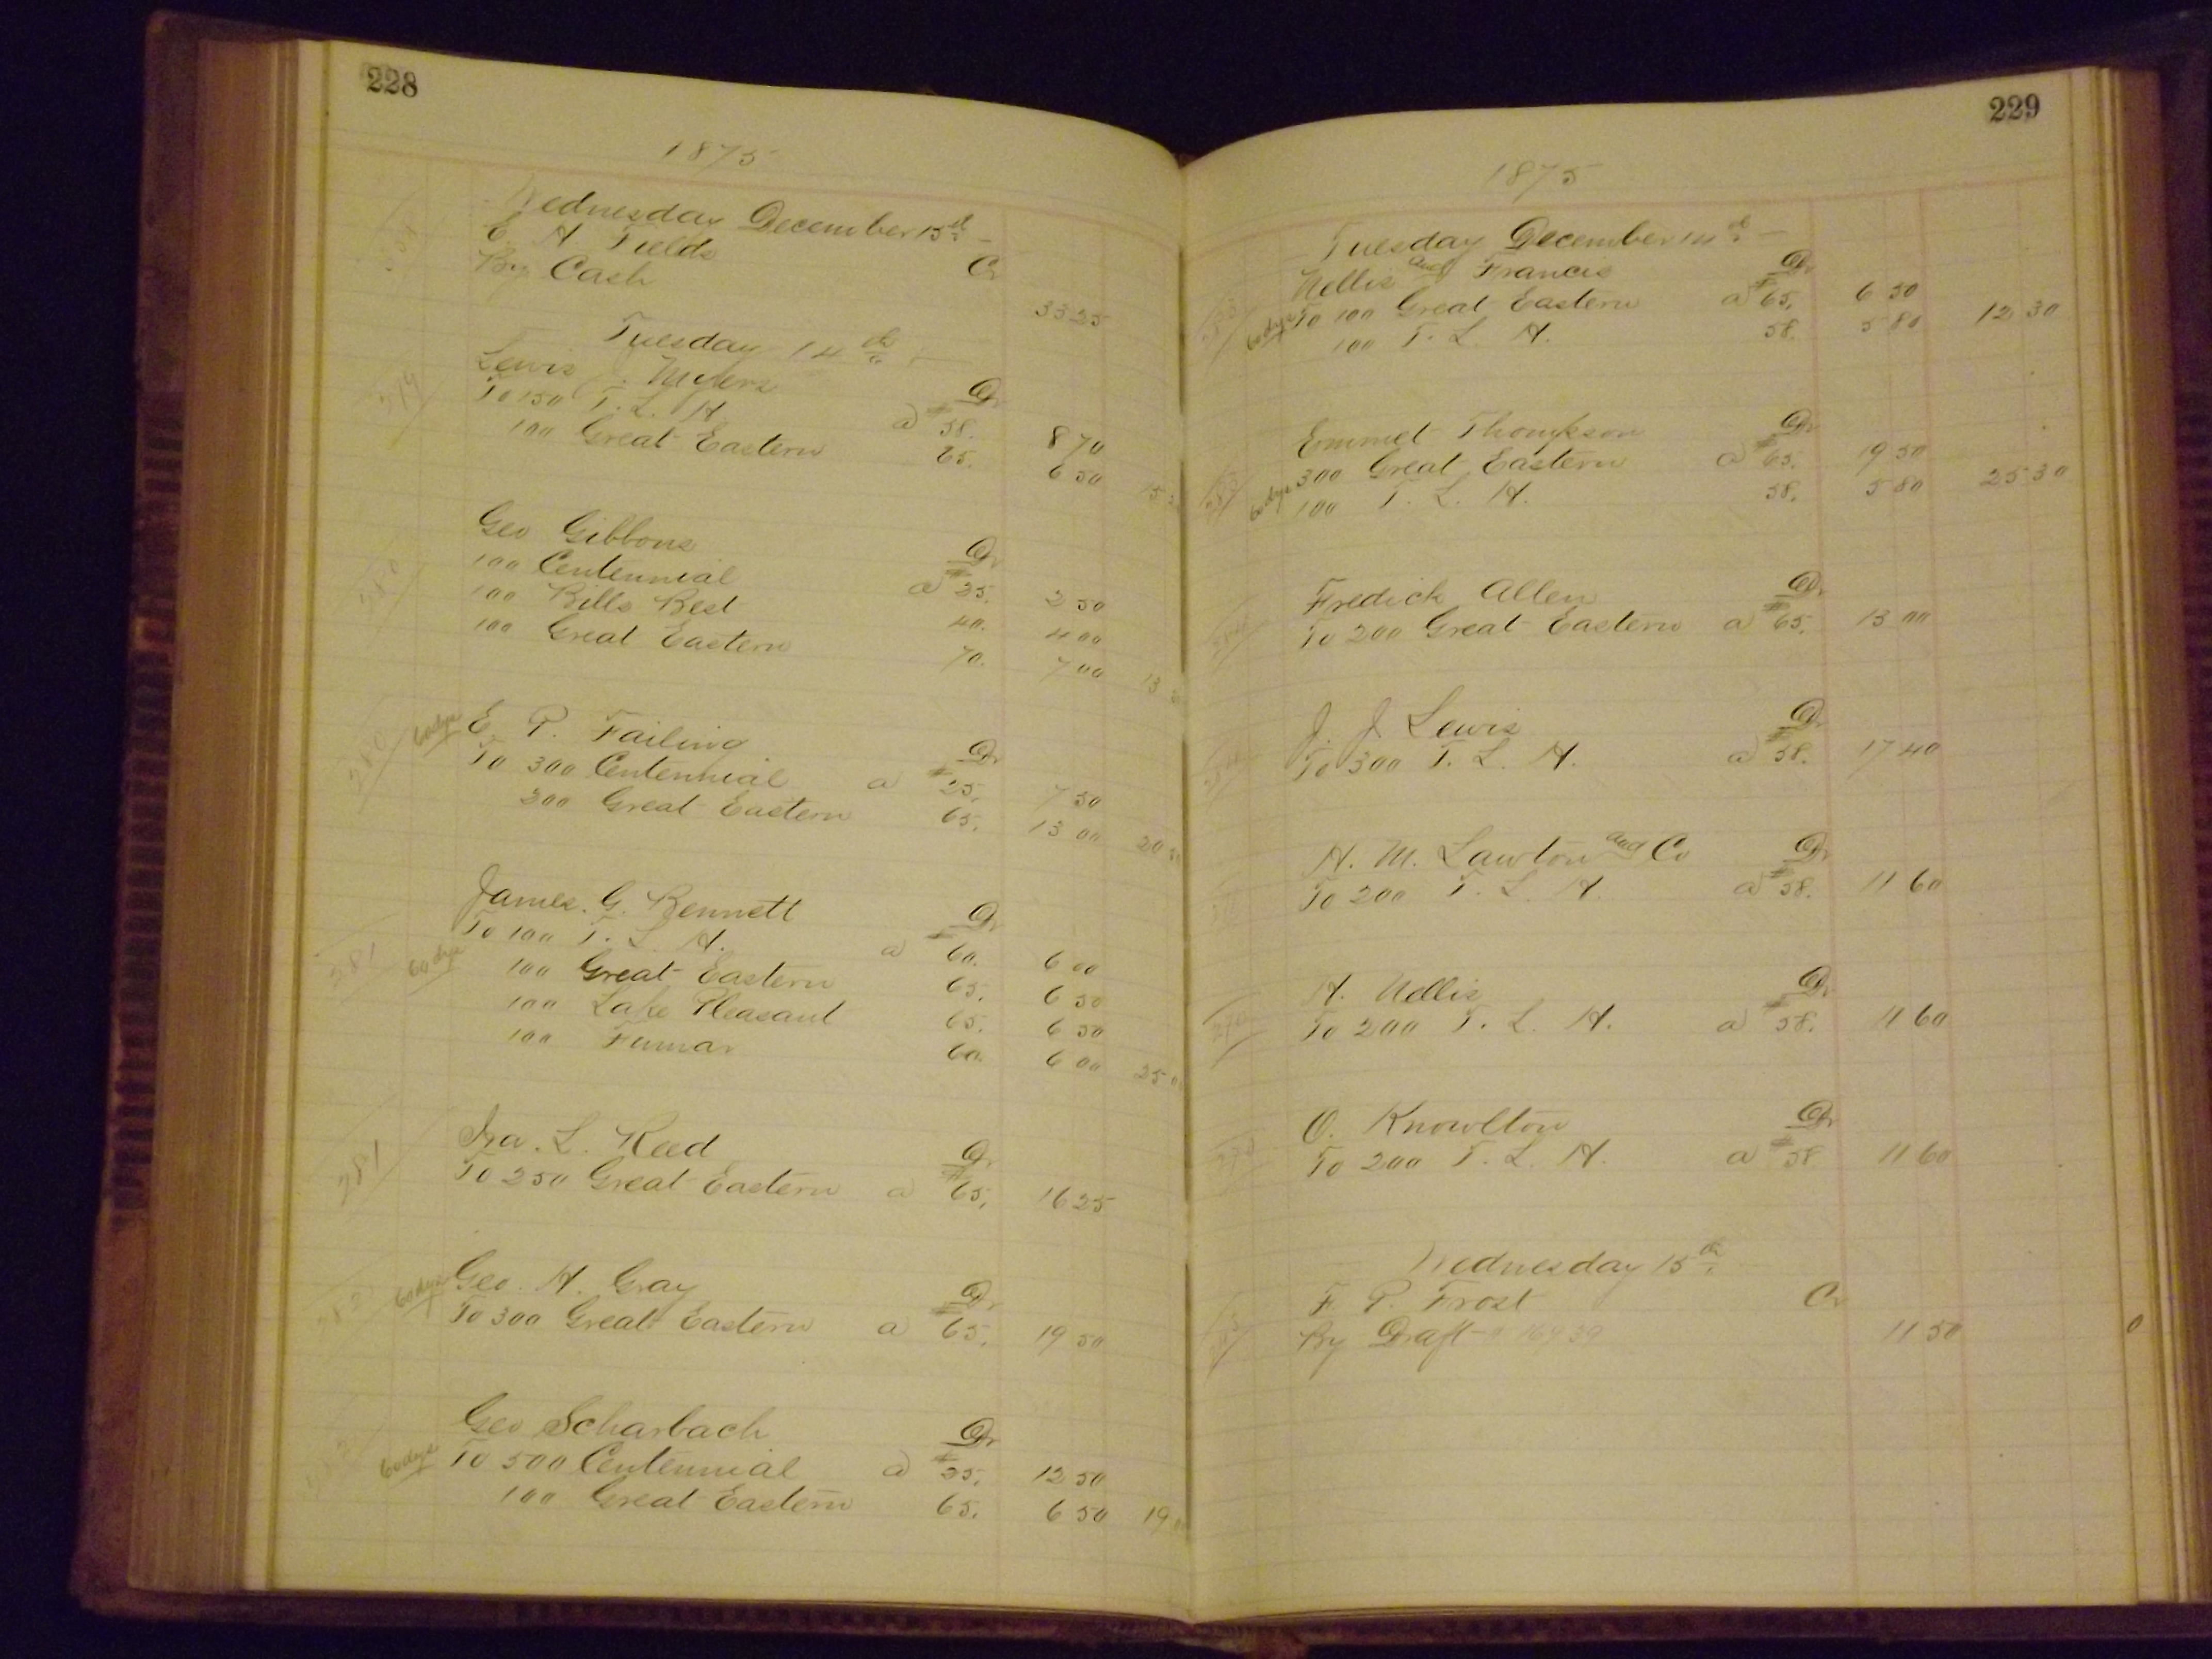 228
1875
Wednesday December 15th
E. A. Fields Cr
By Cash 33 25
Tuesday 14th
279 Lewis J. Myers Dr
To 150 T. L. H. a $58. 8 70
100 Great Eastern 65. 6 50 15
Geo Gibbons Dr
100 Centennial a $25. 2 50
100 Bills Best 40. 4 00
100 Great Eastern 70. 7 00 13
280 60 dys E. P. Failing Dr
To 300 Centennial a $25. 7 50
200 Great Eastern 65. 13 00 20
James. G. Bennett Dr
281 60 dys To 100 T. L. H. a $60. 6 00
100 Great Eastern 65. 6 50
100 Lake Pleasant 65. 6 50
100 Fumar 60. 6 00 25 0
281 Ira. L. Reed Dr
To 250 Great Eastern a $65. 16 25
60 dys Geo. H. Gray Dr
To 300 Great Eastern a $65. 19 50
Geo Scharbach Dr
60 dys To 500 Centennial a $25. 12 50
100 Great Eastern 65. 6 50 19
229
1875
Tuesday December 14th
Nellis and Francis Dr
60 dys To 100 Great Eastern a $65. 6 50
100 T. L. H. 58. 5 80 12 30
Emmet Thompson Dr
60 dys 300 Great Eastern a $65. 19 50
100 T. L. H. 58. 5 80 25 30
Fredick Allen Dr
To 200 Great Eastern a $65. 13 00
J. J. Lewis Dr
To 300 T. L. H. a $58. 17 40
H. M. Lawton and Co Dr
To 200 T. L. H. a $58. 11 60
H. Nellis Dr
To 200 T. L. H. a $58. 11 60
O. Knowlton Dr
To 200 T. L. H. a $58 11 60
Wednesday 15th
F. P. Frost Cr
By Draft 11 50